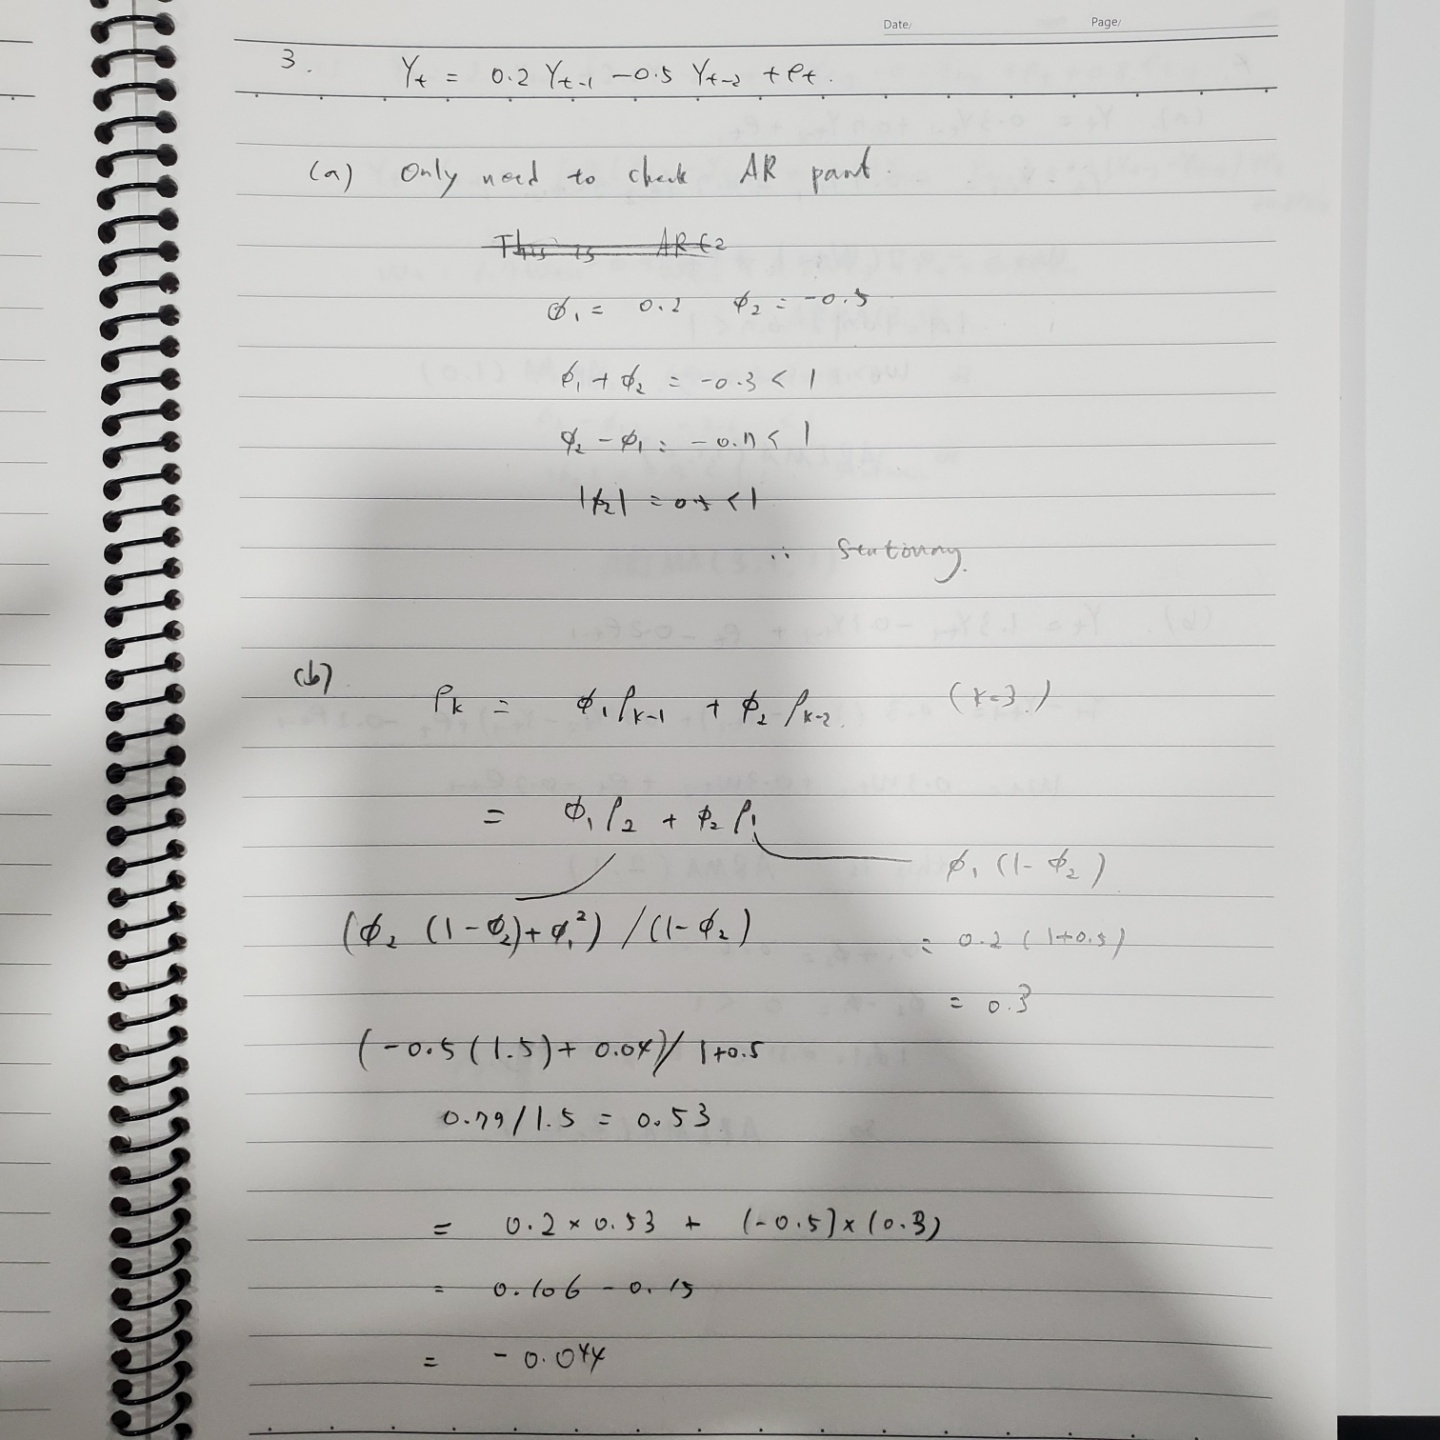 Date/ Page/
3. Yₜ = 0.2 Yₜ₋₁ - 0.5 Yₜ₋₂ + eₜ.
(a) Only need to check AR part.
This is AR(2
ϕ₁ = 0.2 ϕ₂ = -0.5
ϕ₁ + ϕ₂ = -0.3 < 1
ϕ₂ - ϕ₁ = -0.7 < 1
|ϕ₂| = 0.5 < 1
∴ Stationary.
(b) ρₖ = ϕ₁ρₖ₋₁ + ϕ₂ρₖ₋₂. (k=3.)
= ϕ₁ρ₂ + ϕ₂ρ₁
ϕ₁ (1-ϕ₂)
(ϕ₂ (1-ϕ₂)+ϕ₁²) / (1-ϕ₂)
= 0.2 (1+0.5)
= 0.3
(-0.5(1.5)+ 0.04)/ 1+0.5
0.79/1.5 = 0.53
= 0.2 × 0.53 + (-0.5)×(0.3)
= 0.106 - 0.15
= -0.044